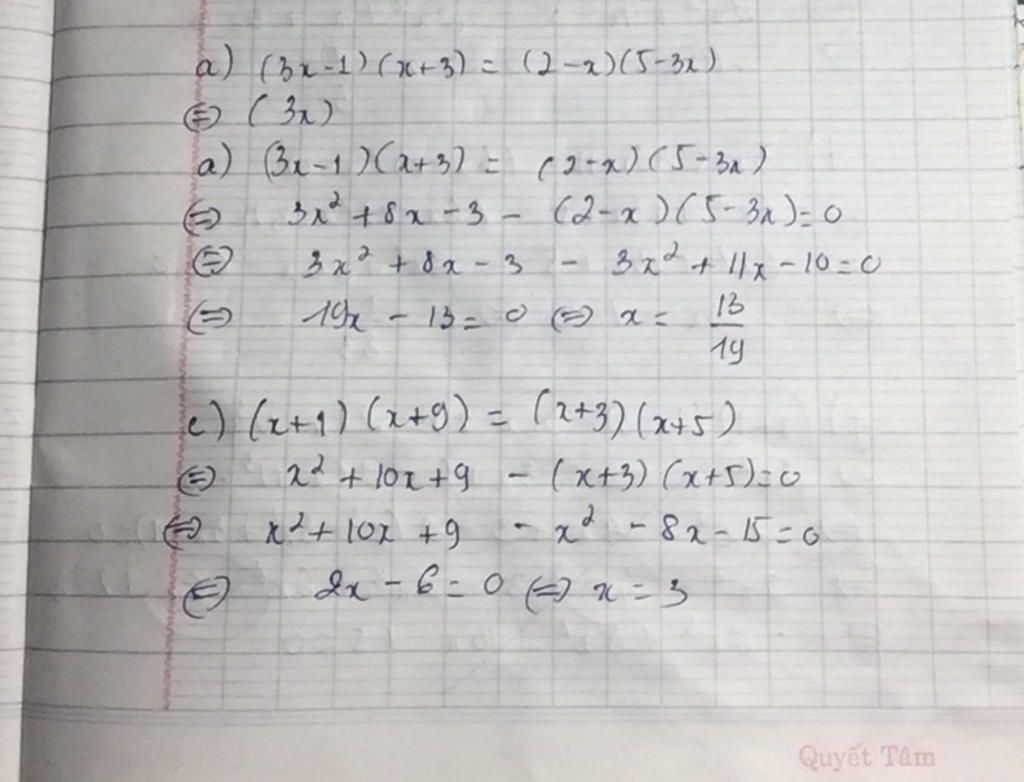 a) (3x-1)(x+3) = (2-x)(5-3x)
⇔ (3x)
a) (3x-1)(x+3) = (2-x)(5-3x)
⇔ 3x² + 8x - 3 - (2-x)(5-3x) = 0
⇔ 3x² + 8x - 3 - 3x² + 11x - 10 = 0
⇔ 19x - 13 = 0 ⇔ x = 13/19
c) (x+1)(x+9) = (x+3)(x+5)
⇔ x² + 10x + 9 - (x+3)(x+5) = 0
⇔ x² + 10x + 9 - x² - 8x - 15 = 0
⇔ 2x - 6 = 0 ⇔ x = 3
Quyết Tâm